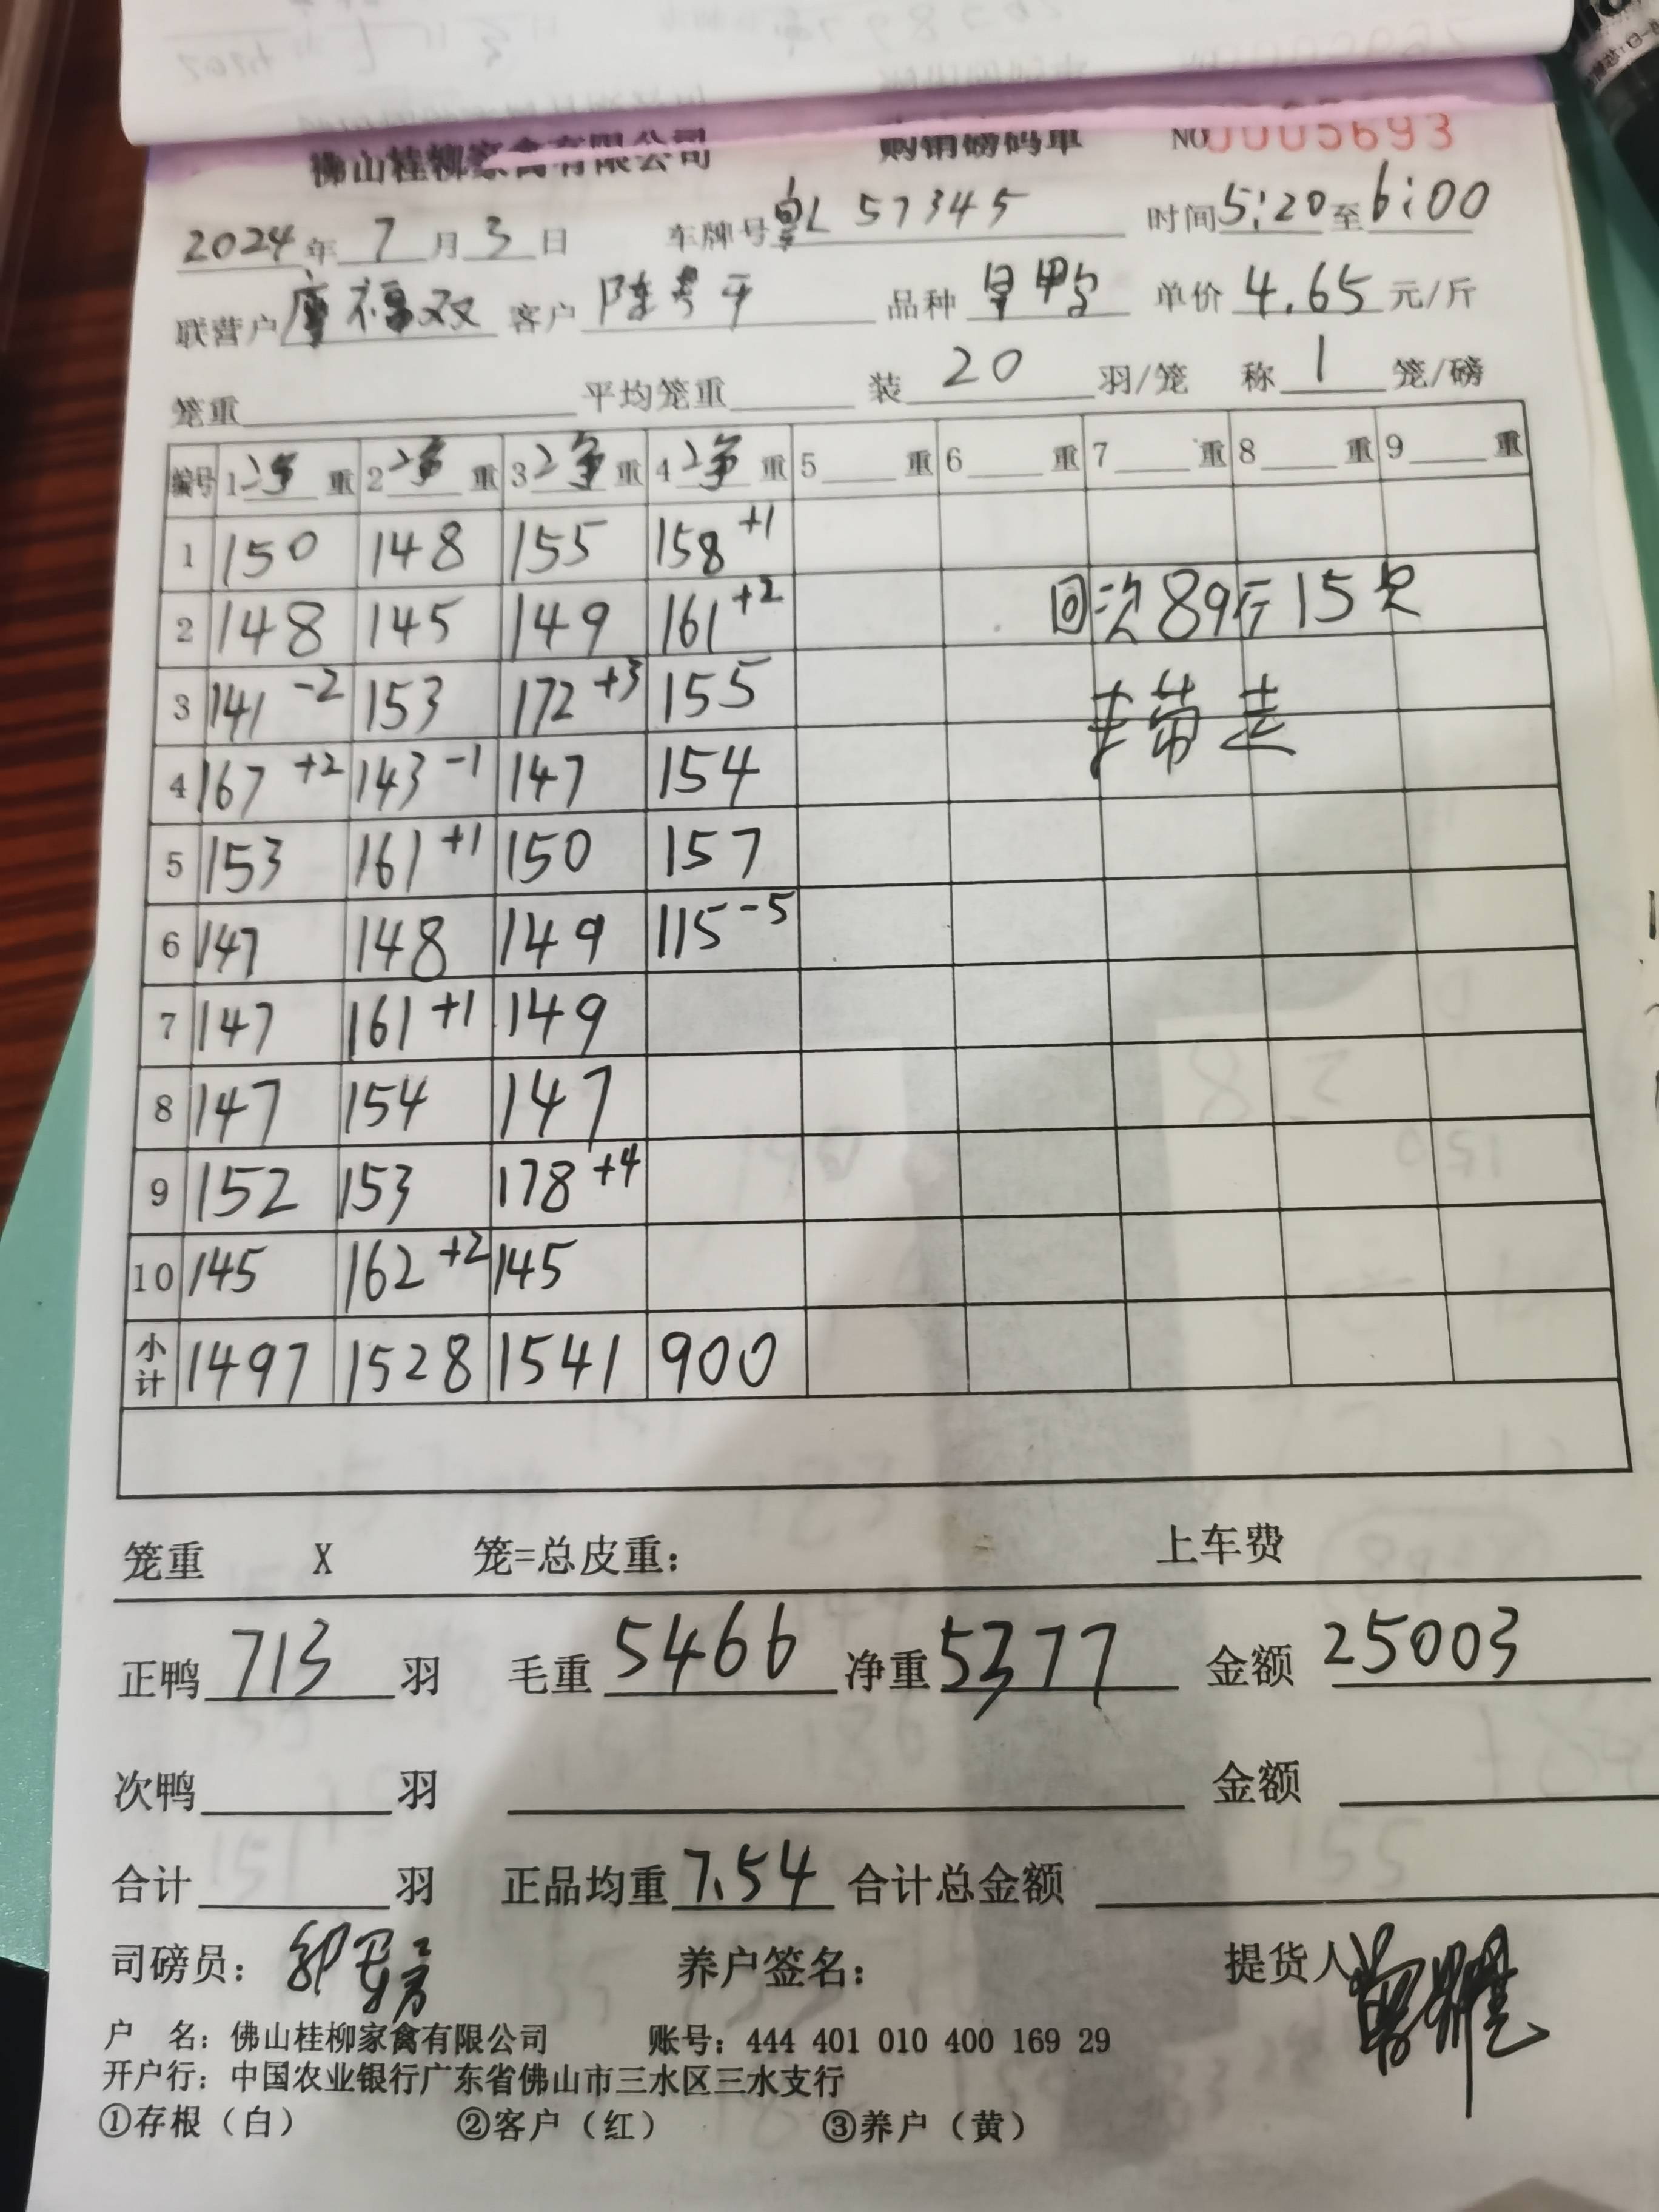 佛山桂柳家禽有限公司 购销磅码单 NO 0005693
2024年7月3日 车牌号 L57345 时间5:20至6:00
联营户 福双 客户 陈 平 品种 鸭 单价4.65元/斤
笼重 平均笼重 装20羽/笼 称1笼/磅
编号 1净重 2净重 3净重 4净重 5重 6重 7重 8重 9重
1 150 148 155 158+1
2 148 145 149 161+2 回次89斤15只
3 141-2 153 172+3 155 带走
4 167+2 143-1 147 154
5 153 161+1 150 157
6 147 148 149 115-5
7 147 161+1 149
8 147 154 147
9 152 153 178+4
10 145 162+2 145
小计 1497 1528 1541 900
笼重 X 笼=总皮重： 上车费
正鸭713羽 毛重5466 净重5377 金额25003
次鸭 羽 金额
合计 羽 正品均重7.54 合计总金额
司磅员： 养户签名： 提货人
户 名：佛山桂柳家禽有限公司 账号：444 401 010 400 169 29
开户行：中国农业银行广东省佛山市三水区三水支行
①存根（白） ②客户（红） ③养户（黄）